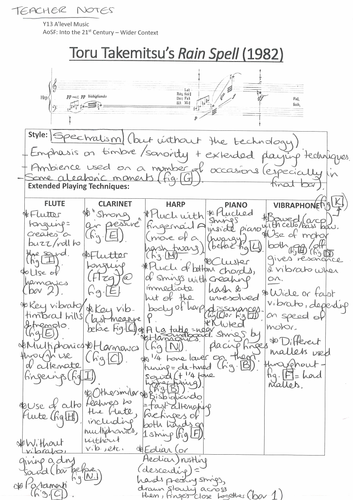 TEACHER NOTES
Y13 A'level Music
AoSF: Into the 21st Century – Wider Context
Toru Takemitsu's Rain Spell (1982)
Style: Spectralism (but without the technology)
- Emphasis on timbre/sonority + extended playing techniques
- Ambience used on a number of occasions (especially in final bar).
- Some aleatoric moments (fig. G).
Extended Playing Techniques:
FLUTE
* Flutter
tonguing -
creates a
buzz/roll to
the sound.
* Use of
harmonics
(bar 2)
* Key vibrato/
timbral trills/
tremolo,
(fig E)
* Multiphonics
through use
of alternate
fingerings (fig I).
* Use of alto
flute (fig H)
* Without
vibrato -
giving a dry
sound (bar before
fig N).
* Portamenti
(fig C).
CLARINET
* "Strong
air pressure"
(fig E)
* Flutter
tonguing
(Flzg) @
fig E
* Key vib.
(last measure
before fig L)
* Harmonics
(fig C)
* Other similar
features to
the flute,
including
multiphonics,
without
vib. etc.
HARP
* Pluck with
fingernail
(more of a
harsh twang)
(fig H)
* Pluck of bottom
of strings with
immediate
hit of the
body of harp
* Harmonics
(fig N)
* 1/4 tone lower
tuning = de-tuned
sound
* Bisbigliando
= fast alternating
exchanges of
both hands on
1 string (fig F)
* Eolian (or
Aeolian) rustling
(descending) =
hands pressing strings,
drawn slowly across
then fingers close together (bar 1)
PIANO
* Plucked
strings
inside piano
(before fig L)
* Cluster
chords,
creating
harsh &
unresolved
dissonances.
* Muted
strings by
placing fingers
on them
(fig B)
VIBRAPHONE
* Bowed (arco)
with cello/bass bow.
* Use of motor
both on/off
gives resonance
& vibrato when
on
* Wide or fast
vibrato, depending
on speed of
motor.
* Different
mallets used
throughout -
fig H = hard
mallets.